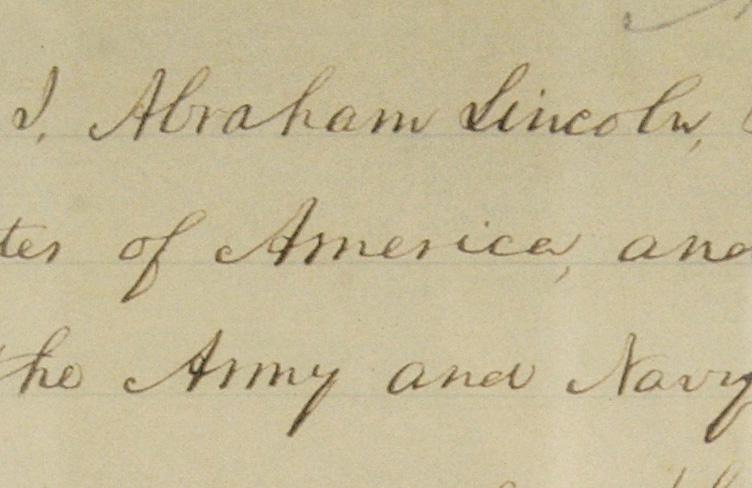 I, Abraham Lincoln,
tes of America, and
the Army and Navy